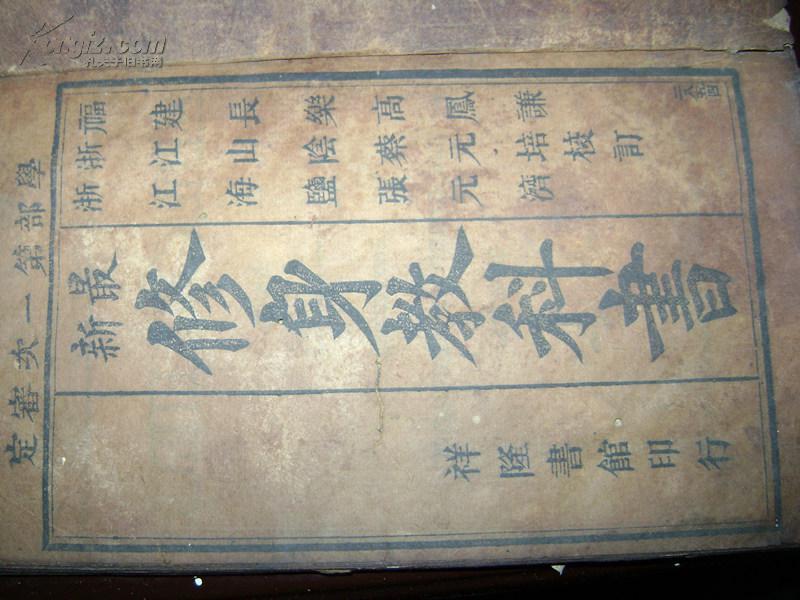 學部第一次審定
福建長樂高鳳謙
浙江山陰蔡元培
浙江海鹽張元濟
校訂
最新
修身教科書
祥隆書館印行
Kongfz.com
孔夫子旧书网